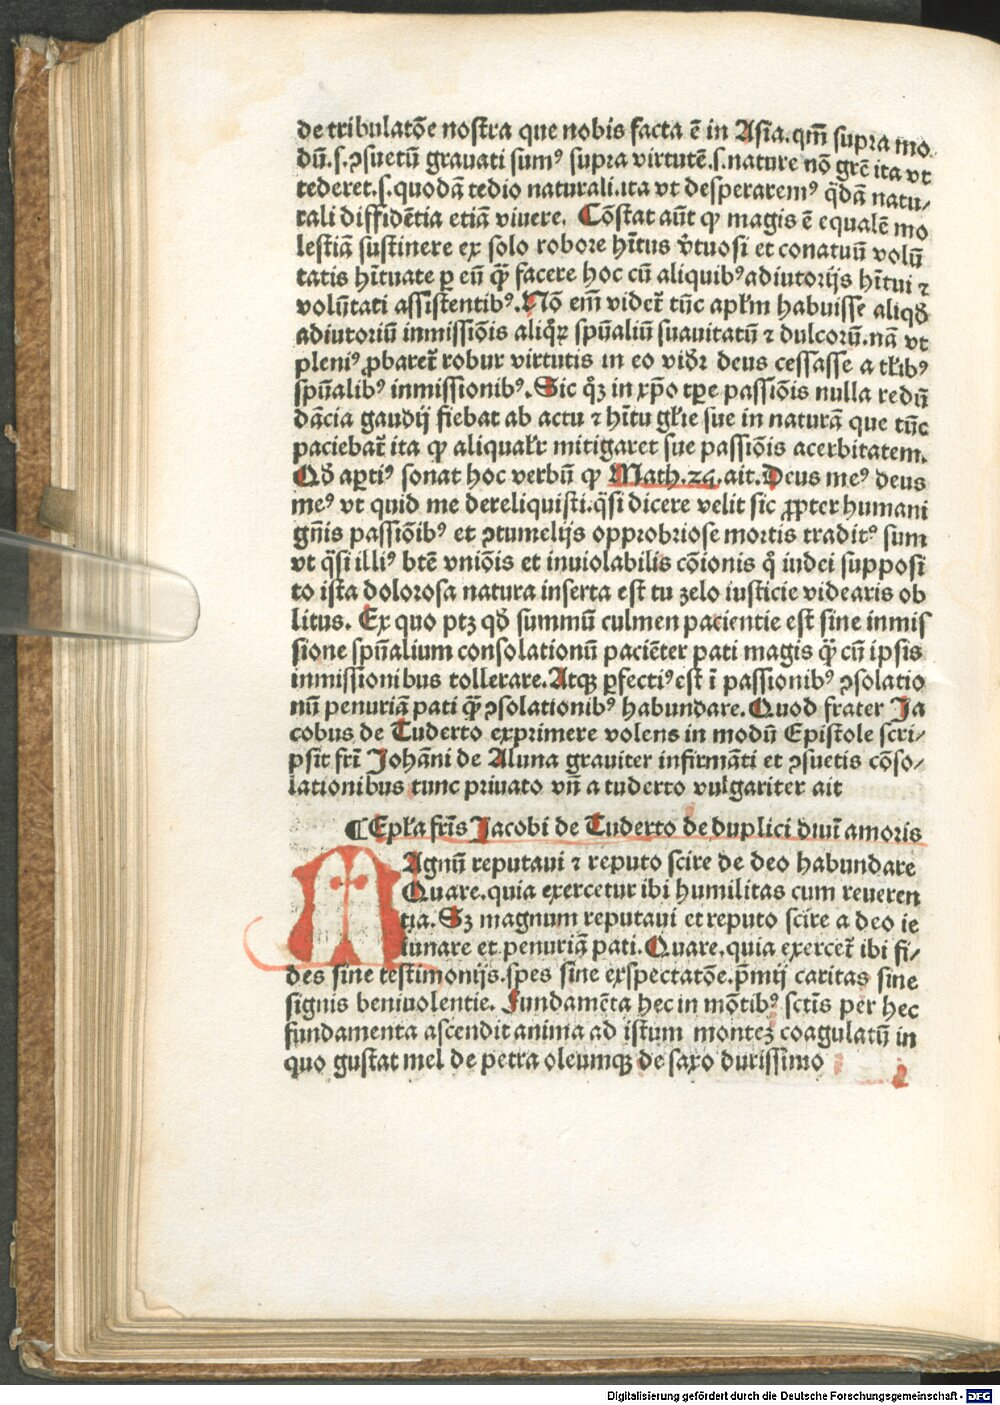 de tribulatōe nostra que nobis facta ē in Asia. qm̄ supra mo
dū.s.ꝯsuetū grauati sumꝰ supra virtutē.s.nature nō grē ita vt
tederet.s.quodā tedio naturali.ita vt desperaremꝰ q̄dā natu⸗
rali diffidētia etiā viuere. Cōstat aūt ꝙ magis ē equalē mo
lestiā sustinere ex solo robore hītus v̄tuosi et conatuū volū
tatis hītuate ꝑ eū q̄ꝫ facere hoc cū aliquibꝰ adiutorijs hītui ⁊
volūtati assistentibꝰ. Nō em̄ videt̄ tūc aplm̄ habuisse aliqđ
adiutoriū inmissiōis aliq̄ꝝ spūaliū suauitatū ⁊ dulcorū.nā vt
pleniꝰ ꝓbaret̄ robur virtutis in eo vidr̄ deus cessasse a tłibꝰ
spūalibꝰ inmissionibꝰ. Sic qͦꝫ in xp̄o tꝑe passiōis nulla redū
dācia gaudij fiebat ab actu ⁊ hītu głie sue in naturā que tūc
paciebat̄ ita ꝙ aliqualr̄ mitigaret sue passiōis acerbitatem.
Qđ aꝑtiꝰ sonat hoc verbū ꝙ Math.24.ait. Deus meꝰ deus
meꝰ vt quid me dereliquisti.q̄si dicere velit sic ꝓpter humani
gn̄is passiōibꝰ et ꝯtumelijs opprobriose mortis traditꝰ sum
vt q̄si illiꝰ btē vniōis et inuiolabilis cōionis qͦ iudei supposi
to ista dolorosa natura inserta est tu zelo iusticie videaris ob
litus. Ex quo ptꝫ qđ summū culmen pacientie est sine inmis
sione spūalium consolationū paciēter pati magis q̄ꝫ cū ipsis
inmissionibus tollerare. Atqꝫ ꝑfectiꝰ est ī passionibꝰ ꝯsolatio
nū penuriā pati q̄ꝫ ꝯsolationibꝰ habundare. Quod frater Ja
cobus de Tuderto exprimere volens in modū Epistole scri⸗
psit frī Johāni de Aluna grauiter infirmāti et ꝯsuetis cōso⸗
lationibus tunc priuato vn̄ a tuderto vulgariter ait
¶ Epła fr̄is Jacobi de Tuderto de duplici diuī amoris
MAgnū reputaui ⁊ reputo scire de deo habundare
Quare.quia exercetur ibi humilitas cum reueren
tia. Sꝫ magnum reputaui et reputo scire a deo ie
iunare et penuriā pati. Quare.quia exercet̄ ibi fi⸗
des sine testimonijs.spes sine exspectatōe.p̄mij caritas sine
signis beniuolentie. Fundamēta hec in mōtibꝰ sctīs per hec
fundamenta ascendit anima ad istum montez coagulatū in
quo gustat mel de petra oleumqꝫ de saxo durissimo
Digitalisierung gefördert durch die Deutsche Forschungsgemeinschaft - DFG